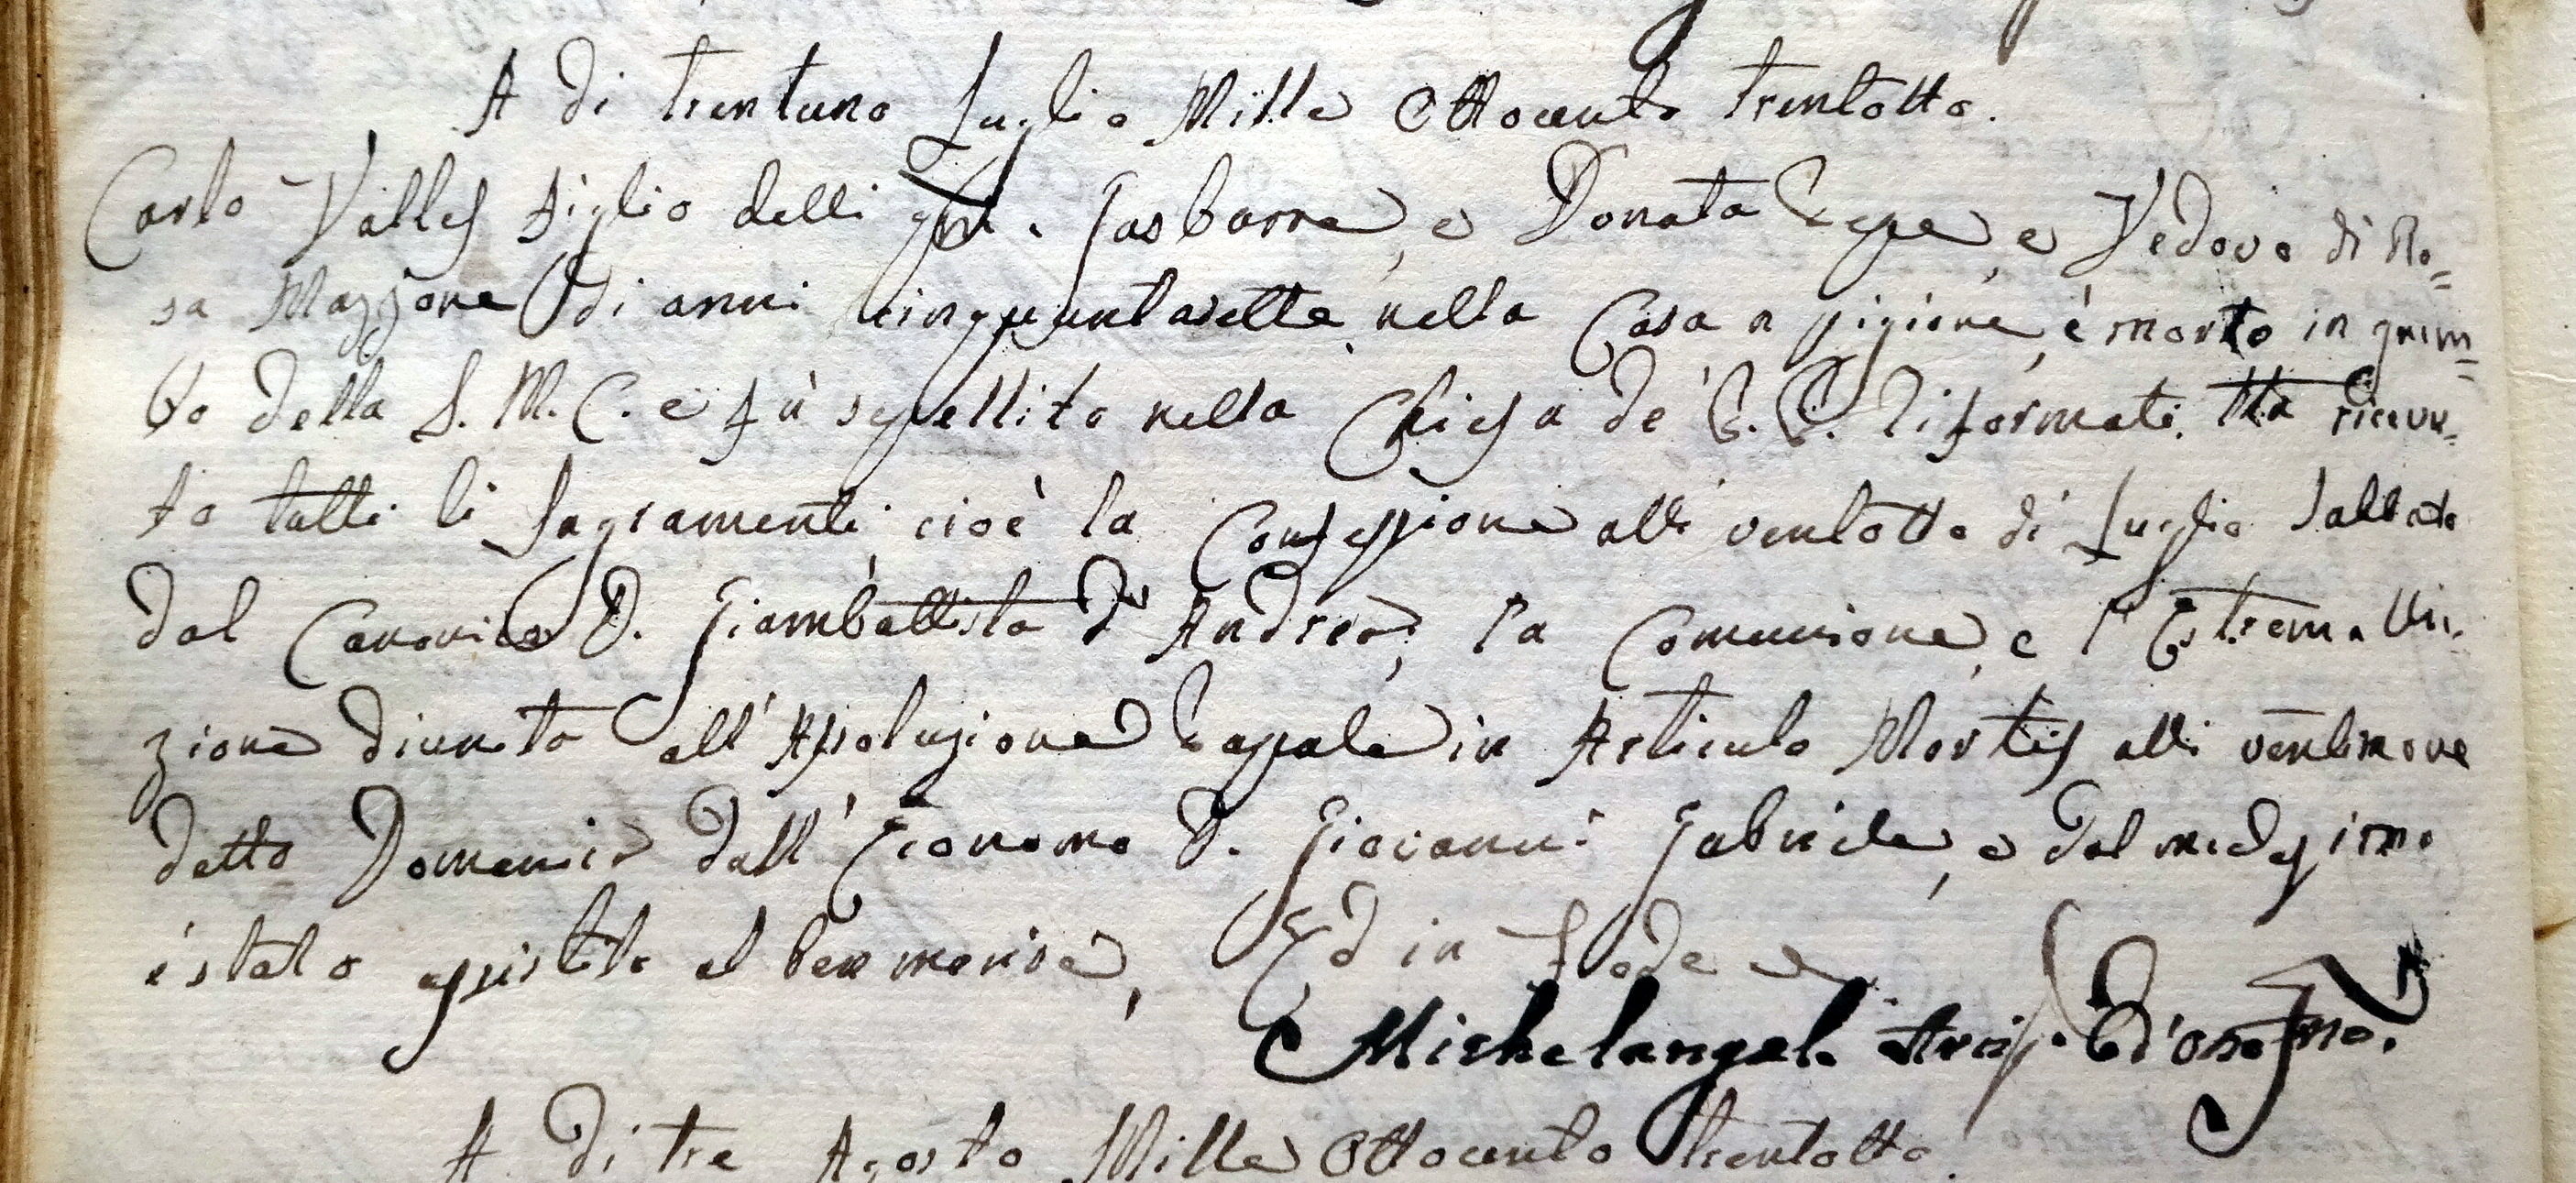 A di trentuno Luglio Mille Ottocento trentotto.
Carlo Valles figlio delli qm. Gasbarre, e Donata Pepe, e Vedovo di Ro=
sa Mazzone di anni Cinquantasette nella Casa a pigione, è morto in grem=
bo della S. M. C. e fù sepellito nella Chiesa de' P. P. Riformati. Ha ricevu=
to tutti li Sagramenti, cioè la Confessione alli ventotto di Luglio Sabbato
dal Canonico D. Giambattista D'Andrea, la Comunione, e l'Estrema Un=
zione diunita all'Assoluzione Pappale in Articulo Mortis alli ventinove
detto Domenica dall'Economo D. Giovanni Gabriele, e dal medesimo
è stato assistito al ben morire, Ed in fede
Michelangelo Arcip. D'Onofrio.
A di tre Agosto Mille Ottocento trentotto.